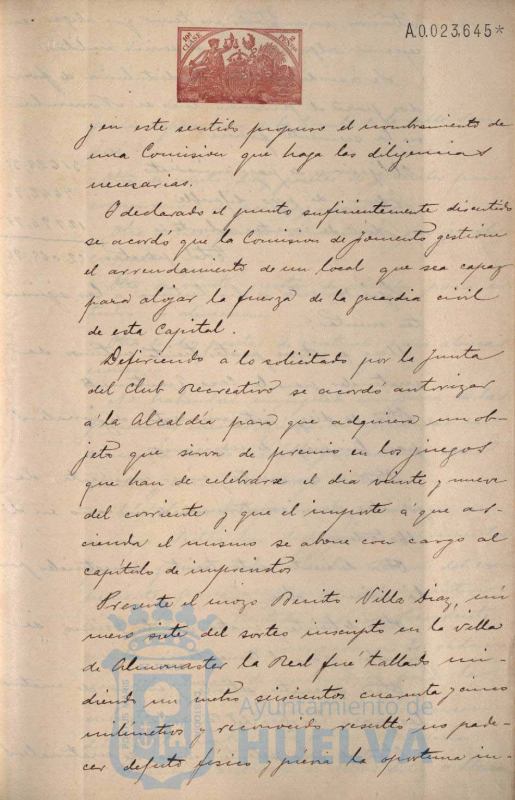 10ª CLASE
2 PESETAS
A.0.023.645*
y en este sentido propuso el nombramiento de
una Comision que haga las diligencias
necesarias.
I declarado el punto suficientemente discutido
se acordó que la Comision de fomento gestione
el arrendamiento de un local que sea capaz
para alojar la fuerza de la guardia civil
de esta Capital.
Defiriendo á lo solicitado por la Junta
del Club Recreativo se acordó autorizar
á la Alcaldía para que adquiera un ob-
jeto que sirva de premio en los juegos
que han de celebrarse el dia veinte y nueve
del corriente y que el importe á que as-
cienda el mismo se abone con cargo al
capítulo de imprevistos
Presente el mozo Benito Villa Diaz, nú
mero siete del sorteo inscripto en la villa
de Almonaster la Real fué tallado mi-
diendo un metro seiscientos cuarenta y cinco
milimetros y reconocido resultó no pade-
cer defecto físico y previa la oportuna in-
Ayuntamiento de
HUELVA